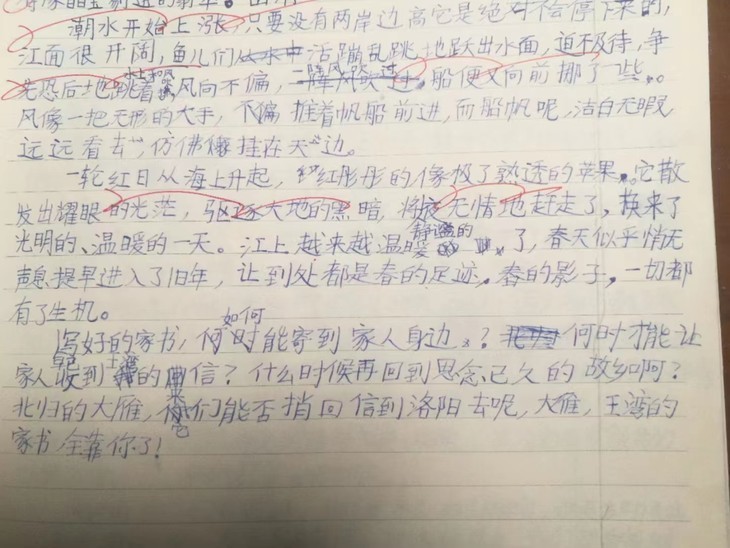 潮水开始上涨,只要没有两岸边高它是绝对不会停下来的,
江面很开阔,鱼儿们活蹦乱跳地跃出水面,迫不及待,争
先恐后地跳着,风向不偏,一阵风吹过,船便又向前挪了些。
风像一把无形的大手,不偏推着帆船前进,而船帆呢,洁白无暇,
远远看去,仿佛像挂在天边。
一轮红日从海上升起,红彤彤的像极了熟透的苹果。它散
发出耀眼的光茫,驱逐大地的黑暗,将夜无情地赶走了,换来了
光明的、温暖的一天。江上越来越温暖静谧的了,春天似乎悄无
声息提早进入了旧年,让到处都是春的足迹,春的影子,一切都
有了生机。
写好的家书,如何何时能寄到家人身边?何时才能让
家人收到的信?什么时候再回到思念已久的故乡啊?
北归的大雁,你们能否捎回信到洛阳去呢,大雁,王湾的
家书全靠你了!